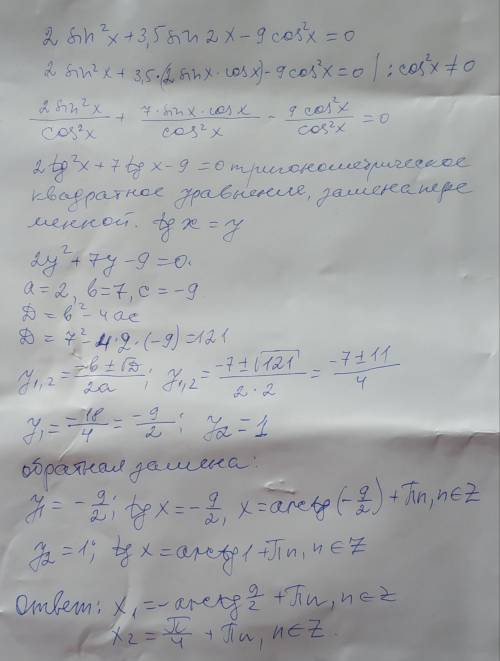 2 sin²x + 3,5 sin 2x - 9 cos²x = 0
2 sin²x + 3,5·(2 sinx · cosx) - 9 cos²x = 0 | : cos²x ≠ 0
2 sin²x/cos²x + 7·sinx·cosx/cos²x - 9 cos²x/cos²x = 0
2 tg²x + 7 tg x - 9 = 0 тригонометрическое
квадратное уравнение, замена пере
менной. tg x = y
2y² + 7y - 9 = 0.
a = 2, b = 7, c = -9.
D = b² - 4ac
D = 7² - 4·2·(-9) = 121
y₁,₂ = -b ± √D/2a ; y₁,₂ = -7 ± √121/2·2 = -7 ± 11/4
y₁ = -18/4 = -9/2 ; y₂ = 1
обратная замена:
y₁ = -9/2; tg x = -9/2, x = arctg(-9/2) + Πn, n∈Z
y₂ = 1; tg x = arctg 1 + Πn, n∈Z
Ответ: x₁ = -arctg 9/2 + Πn, n∈Z
x₂ = Π/4 + Πn, n∈Z.